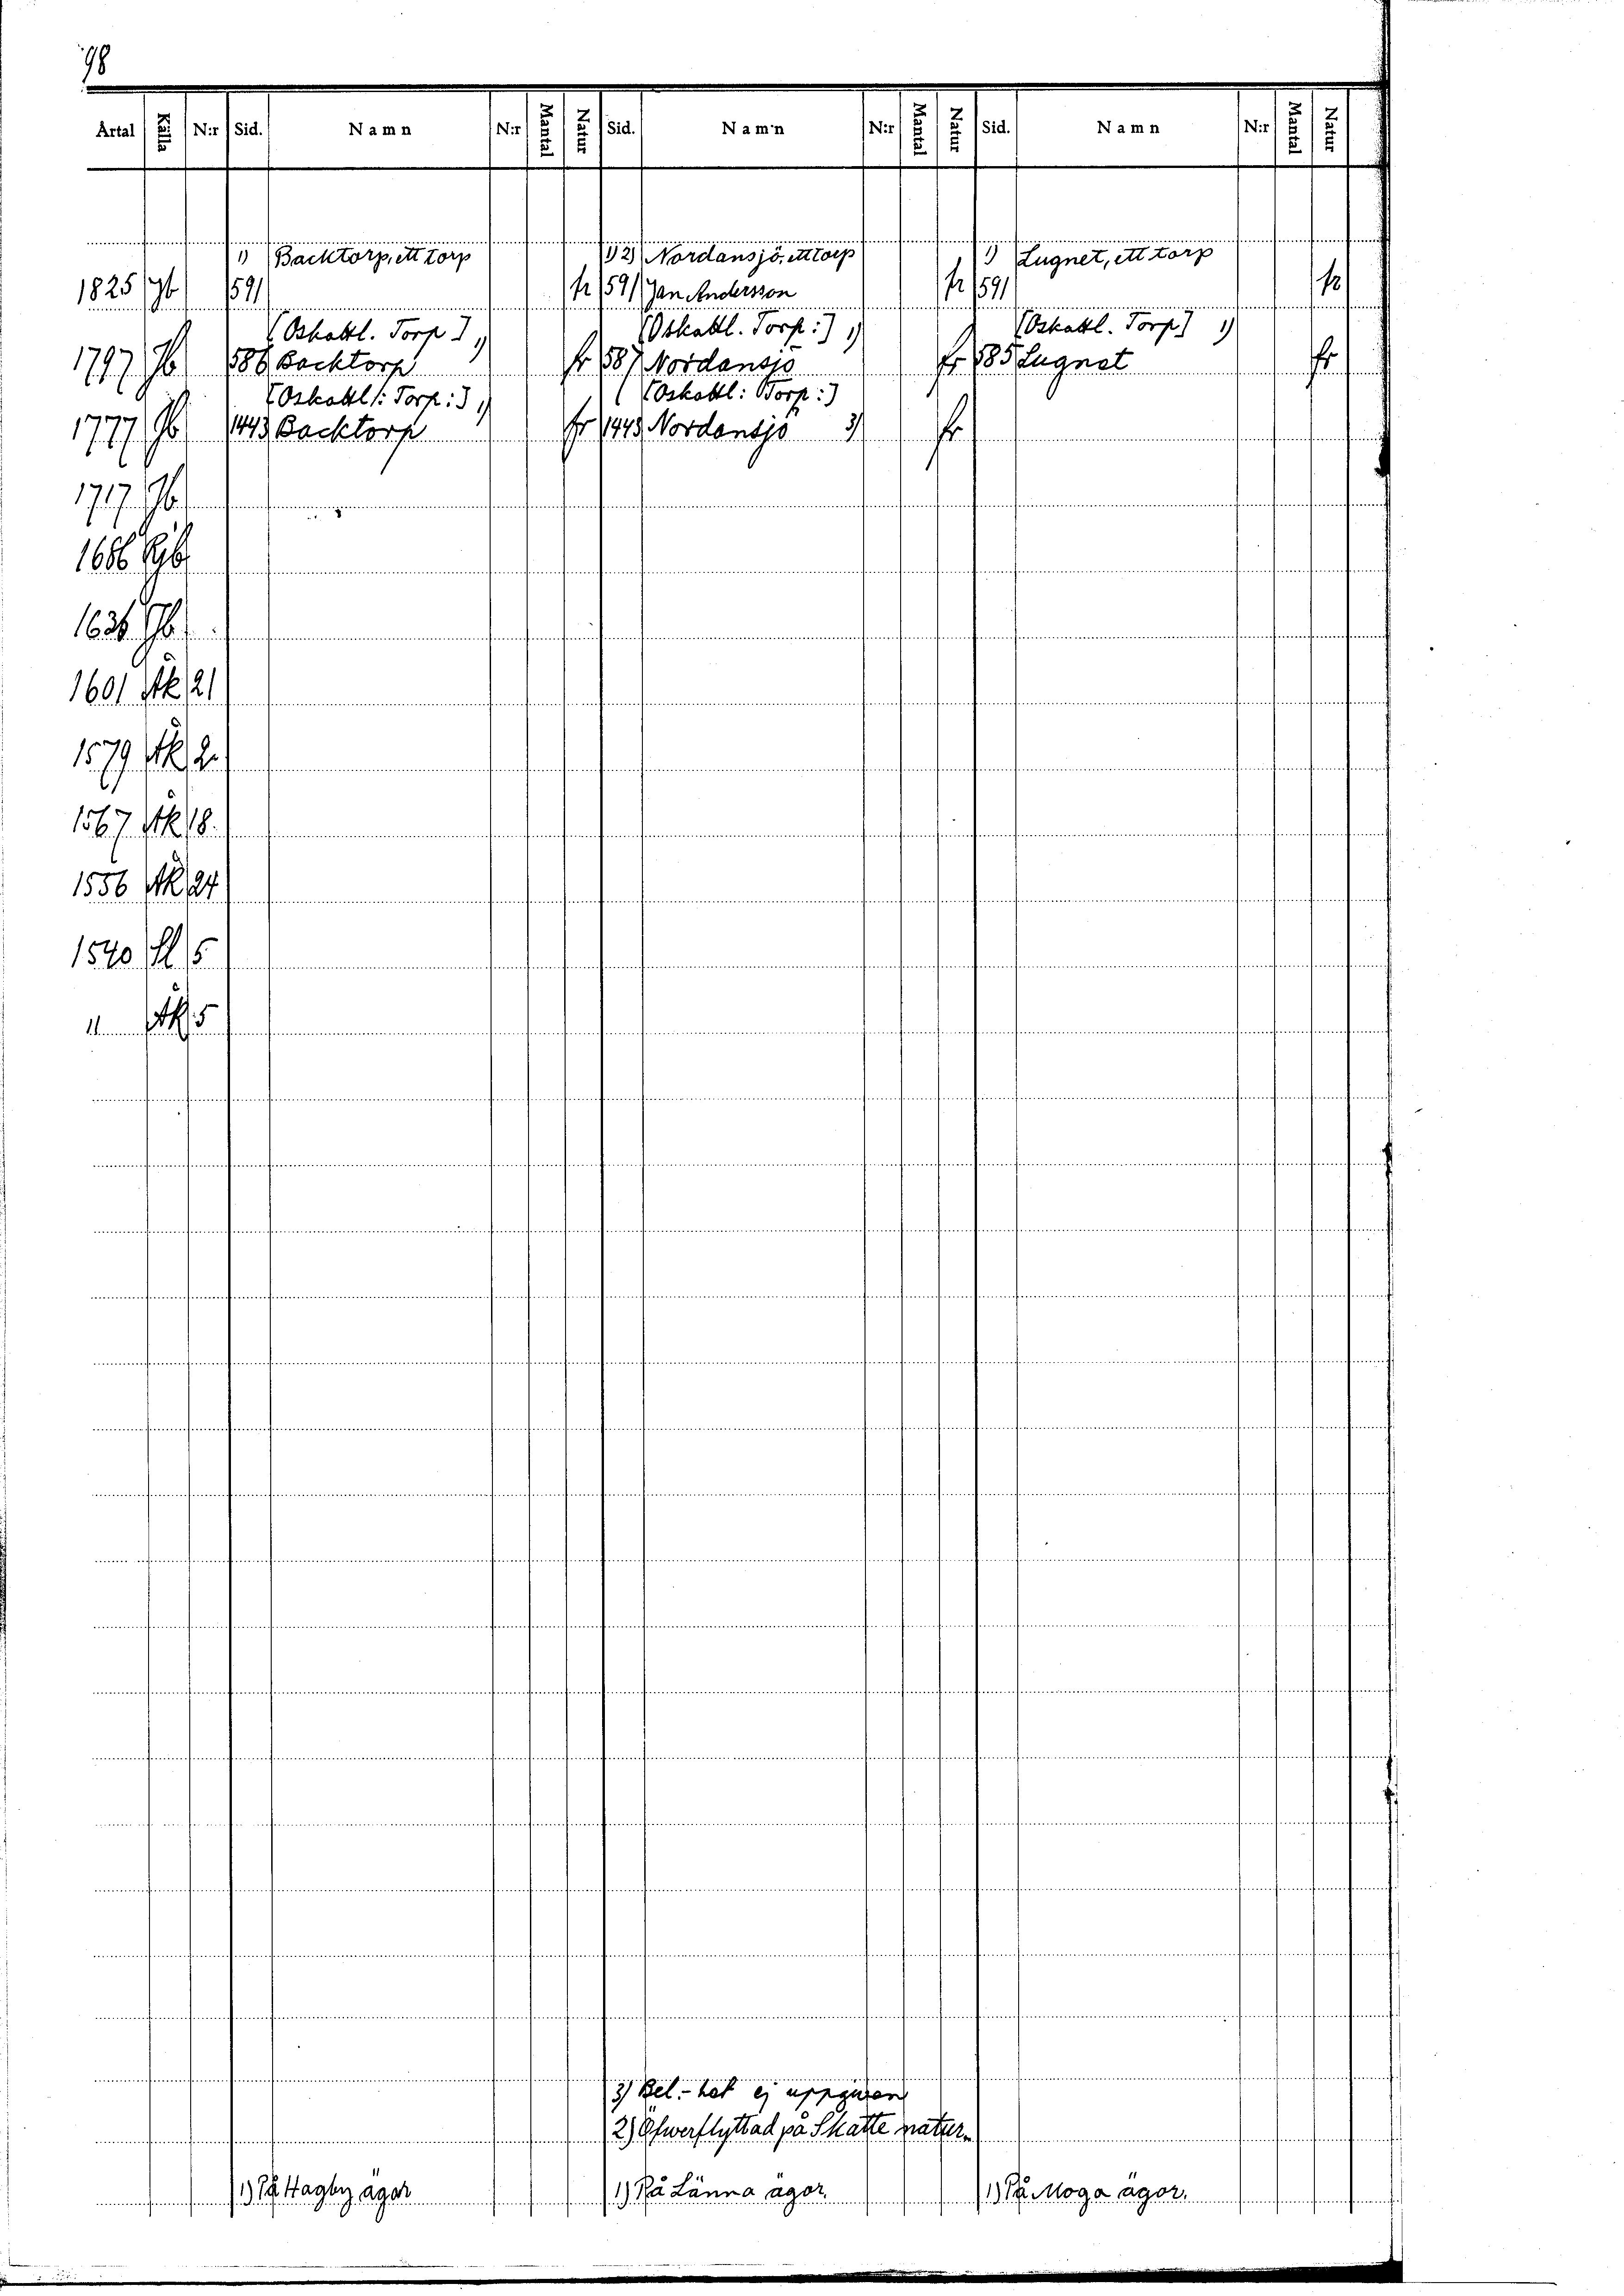 98
Årtal Källa N:r Sid. Namn N:r Mantal Natur Sid. Namn N:r Mantal Natur Sid. Namn N:r Mantal Natur
1) Backtorp, ett torp 1) 2) Nordansjö, ett torp 1) Lugnet, ett torp
1825 Jb 591 fr 591 Jan Andersson fr 591 fr
[Oskattl. Torp] 1) [Oskattl. Torp:] 1) [Oskattl. Torp] 1)
1797 Jb 586 Backtorp fr 587 Nordansjö fr 585 Lugnet fr
[Oskattl: Torp:] 1) [Oskattl: Torp:]
1777 Jb 1443 Backtorp fr 1443 Nordansjö 3) fr
1717 Jb
1686 Rjb
1636 Jb
1601 Åk 21
1579 Åk 2
1567 Åk 18.
1556 Åk 24
1540 Sl 5
" Åk 5
3) Bel:-het ej uppgiven
2) Öfwerflyttad på Skatte natur.
1) På Hagby ägor 1) På Länna ägor. 1) På Moga ägor.